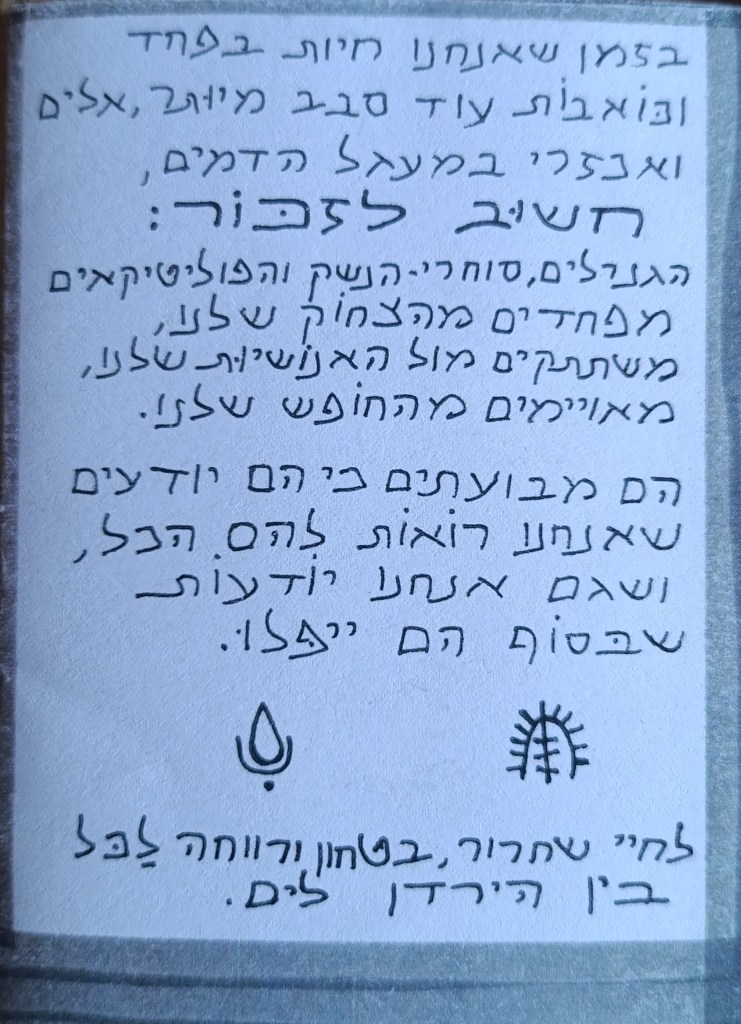 בזמן שאנחנו חיות בפחד
וכּוֹאבוֹת עוד סבב מיוּתר, אלים
ואכזרי במעגל הדמים,
חשוּב לזכּוֹר:
הגנרלים, סוחרי-הנשק והפוליטיקאים
מפחדים מהצחוֹק שלנוּ,
משתתקים מול האנוֹשיוּת שלנוּ,
מאויימים מהחוֹפש שלנוּ.
הם מבועתים כי הם יודעים
שאנחנוּ רוֹאוֹת להם הכל,
ושגם אנחנו יוֹדעוֹת
שבּסוֹף הם ייפּלוּ.
לחיי שחרור, בטחון ורווחה לַכּל
בין הירדן לים.